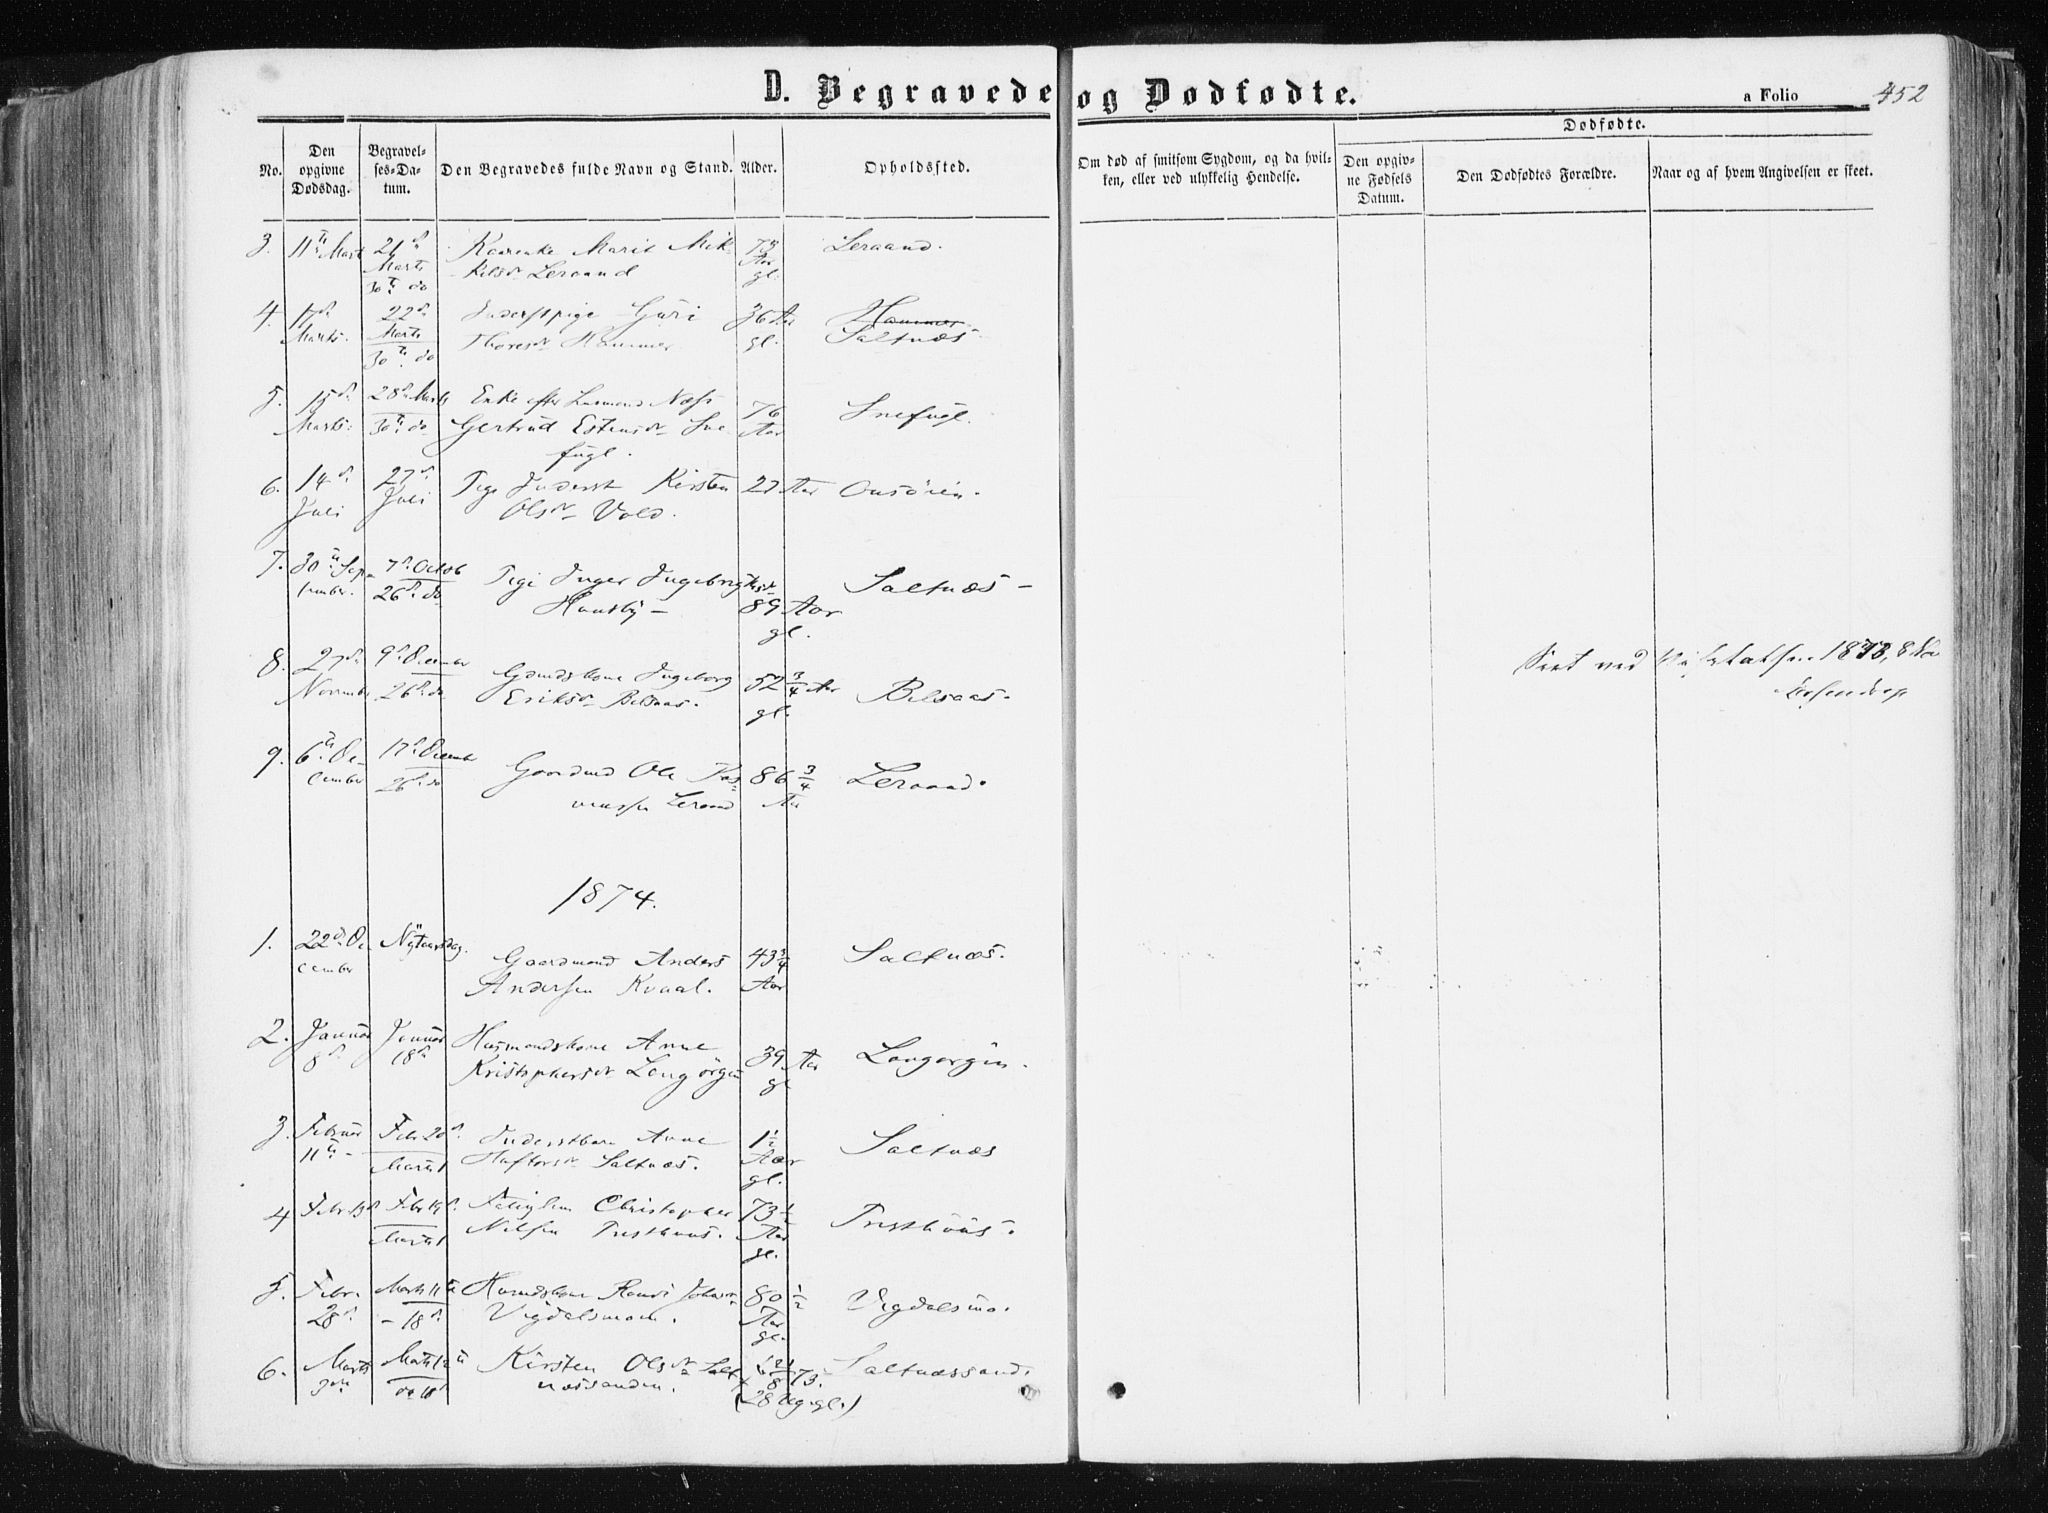 D. Begravede og Dødfødte.
a Folio 452
Dødfødte.
No.
Den opgivne Dødsdag.
Begravelses-Datum.
Den Begravedes fulde Navn og Stand.
Alder.
Opholdssted.
Om død af smitsom Sygdom, og da hvilken, eller ved ulykkelig Hendelse.
Den opgivne Fødsels Datum.
Den Dødfødtes Forældre.
Naar og af hvem Angivelsen er skeet.
3. 11te Marts 21de Marts 30te do Marit Mikkelsdr Leraand Aar gl. Leraand.
4. 17de Marts. 22de Marts 30te do Inderstpige Guri Thoresdr Hammer 36 Aar gl. Hammer Saltnæs
5. 15de Marts. 28de Marts 30te do Enke efter Næss Gertrud Estensdr Snefugl. 76 Aar Snefugl.
6. 14de Juli 27de Juli Inderst Kirsten Olsdr Vold. 27 Aar
7. 30te September. 7de Octob 26de do Inger Ingebrigtsdr 89 Aar gl. Saltnæs
8. 27de November 9de December 26de do Ingeborg Eriksdr Belsaas. 52 3/4 Aar gl. Belsaas.
9. 6te December 17de December 26de do Gaardmd Ole Rasmussen Leraand 86 3/4 Aar Leraand.
Seet ved 1873,
1874.
1. 22de December Nytaarsdag. Gaardmand Anders Andersen Kvaal. 43 3/4 Aar Saltnæs.
2. Januar 8de Januar 18de Husmandskone Anne Kristophersdr Langørgen 39 Aar gl Langørgen.
3. Februar 11te Febr 20de Marts 1 Inderstbarn Anne Haftorsdr Saltnæs. 1 1/2 Aar gl. Saltnæs
4 Febr 13de Febr 19de Marts 1 Christopher Nilsen Tresthuus. 73 1/2 Aar gl. Tresthuus.
5. Febr. 28de Marts 11te 18de Johnsdr Vigdalsmoen. 80 1/2 Aar gl. Vigdalsmo.
6. Marts Marts 12te do 18de Kirsten Olsdr Saltnæssanden. 73. (28 Ug. gl.) Saltnæssand.